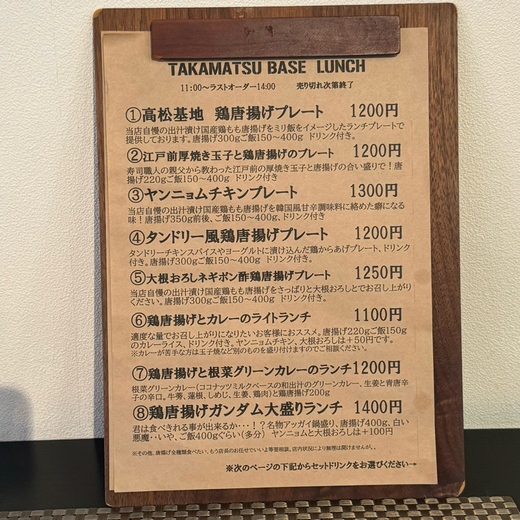 TAKAMATSU BASE LUNCH
11:00〜ラストオーダー14:00 売り切れ次第終了
①高松基地 鶏唐揚げプレート 1200円
当店自慢の出汁漬け国産鶏もも唐揚げをミリ飯をイメージしたランチプレートで
提供しております。唐揚げ300gご飯150〜400g ドリンク付き。
②江戸前厚焼き玉子と鶏唐揚げのプレート 1200円
寿司職人の親父から教わった江戸前の厚焼き玉子と唐揚げの合い盛りで!唐
揚げ220gご飯150〜400g ドリンク付き
③ヤンニョムチキンプレート 1300円
当店自慢の出汁漬け国産鶏もも唐揚げを韓国風甘辛調味料に絡めた癖になる
味!唐揚げ350g前後、ご飯150〜400g、ドリンク付き
④タンドリー風鶏唐揚げプレート 1200円
タンドリーチキンスパイスやヨーグルトに漬け込んだ鶏からあげプレート、ドリンク
付き。唐揚げ300gご飯150〜400g ドリンク付き。
⑤大根おろしネギポン酢鶏唐揚げプレート 1250円
当店自慢の出汁漬け国産鶏もも唐揚げをさっぱりと大根おろしとでお召し上がり
ください。唐揚げ300gご飯150〜400g ドリンク付き。
⑥鶏唐揚げとカレーのライトランチ 1100円
適度な量でお召し上がりになりたいお客様におススメ。唐揚げ220gご飯150g
のカレーライス、ドリンク付き。ヤンニョムチキン、大根おろしは+50円です。
※カレーが苦手な方は玉子焼など別のものを盛り付けますのでご相談ください。
⑦鶏唐揚げと根菜グリーンカレーのランチ1200円
根菜グリーンカレー(ココナッツミルクベースの和出汁のグリーンカレー、生姜と青唐辛
子の辛口。牛蒡、蓮根、しめじ、生姜、鶏肉)と鶏唐揚げ200g
⑧鶏唐揚げガンダム大盛りランチ 1400円
君は食べきれる事が出来るか・・・!?名物アッガイ鍋盛り、唐揚げ400g、白い
悪魔・・いや、ご飯400gぐらい(多分) ヤンニョムと大根おろしは+100円
※その他、唐揚げ全種類食べたい、もう店長のお任せでいいよ等要相談。店内状況により無理は聞けませんが、。
※次のページの下記からセットドリンクをお選びください→